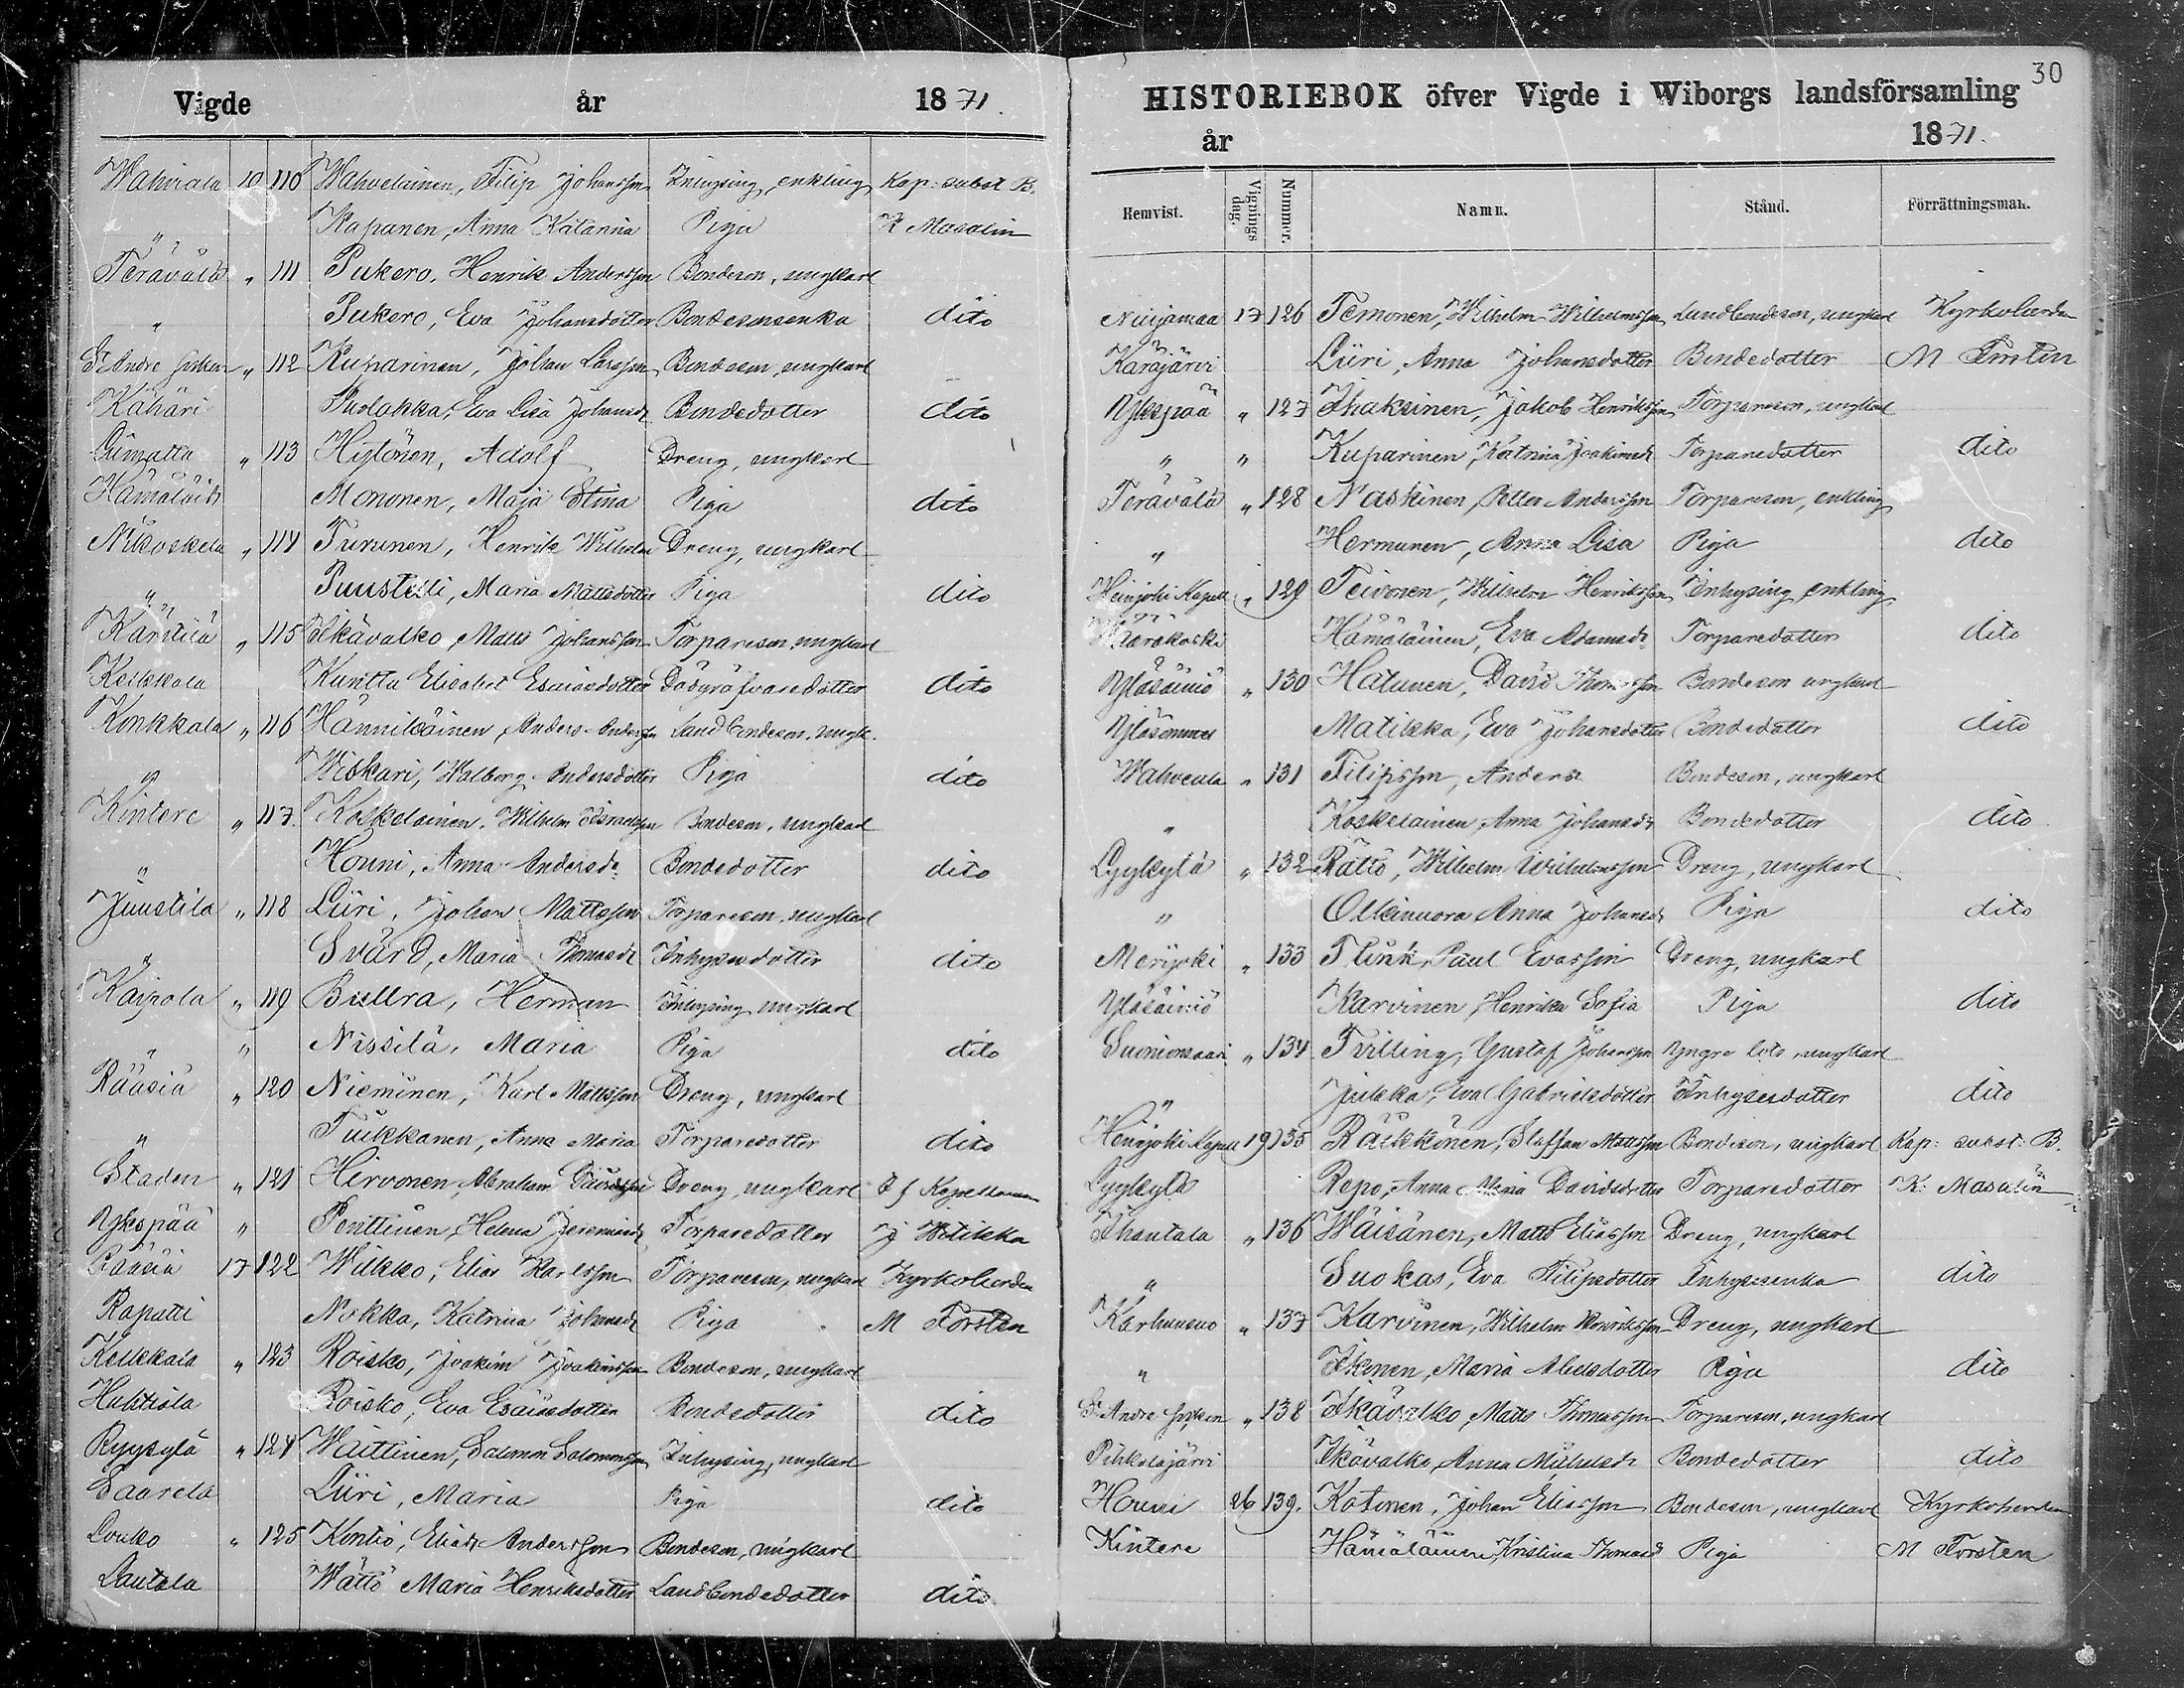 Vigde år 1871.
Wahviala 10 110 Wahvelainen, Filip Johansson Inhysing, enkling Kap: subst B.
" Kapanen, Anna Katarina Piga K Masalin
Terävälä " 111 Pukero, Henrik Andersson Bondeson, ungkarl
" Pukero, Eva Johansdotter Bondesonsenka dito
St Andre socken " 112 Kuparinen, Johan Larsson Bondeson, ungkarl
Kähäri Puolakka, Eva Lisa Johansdr Bondedotter dito
Liimatta " 113 Hytönen, Adolf Dreng, ungkarl
Mononen, Maja Stina Piga dito
Nikoskela " 114 Turunen, Henrik Wilhelm Dreng, ungkarl
" Puustelli, Maria Mattsdotter Piga dito
Kärstilä " 115 Ikävalko, Matts Johansson Torpareson, ungkarl
Kelkkala Kuritta Elisabet Esaiasdotter Dödgräfvaredotter dito
Konkkala " 116 Hännikäinen, Anders Andersson Landbondeson, ungk.
" Wiskari, Walborg Andersdotter Piga dito
Kintere " 117. Koskelainen, Wilhelm Israelsson Bondeson, ungkarl
" Houni, Anna Andersdr Bondedotter dito
Juustila " 118 Liiri, Johan Mattsson Torpareson, ungkarl
" Svärd, Maria Thomasdr Inhysesdotter dito
Kaipola " 119 Bullra, Herman Inhysing, ungkarl
" " Nissilä, Maria Piga dito
Rääsiä " 120 Nieminen, Karl Mattsson Dreng, ungkarl
" Tuikkanen, Anna Maria Torparedotter dito
Staden " 121 Hirvonen, Abraham Davidsson Dreng, ungkarl t f Kapellanen
Ykspää " Penttinen, Helena Jeremiasdr Torparedotter J Hitikka
Rääsiä 17 122 Wilkko, Elias Karlsson Torpareson, ungkarl Kyrkoherden
Rapatti Nokka, Katrina Johansdr Piga M Forsten
Kelkkala " 123 Roisko, Joakim Joakimsson Bondeson, ungkarl
Huhtiala Roisko, Eva Esaiasdotter Bondedotter dito
Ryysylä " 124 Waittinen, Salomon Salomonsson Inhysing, ungkarl
Saarela Liiri, Maria Piga dito
Louko " 125 Kontio, Elias Andersson Bondeson, ungkarl
Lautala Wättö Maria Henriksdotter Landbondedotter dito
30
HISTORIEBOK öfver Vigde i Wiborgs landsförsamling
år 1871.
Hemvist. Vignings dag. Nummer. Namn. Stånd. Förrättningsman.
Nuijamaa 17 126 Temonen, Wilhelm Wilhelmsson Landbondeson, ungkarl Kyrkoherden
Käräjärvi Liiri, Anna Johansdotter Bondedotter M Forsten
Ykspää " 127 Ihaksinen, Jakob Henriksson Torpareson, ungkarl
" " Kuparinen, Katrina Joakimsdr Torparedotter dito
Terävälä " 128 Naskinen, Petter Andersson Torpareson, enkling
" Hermunen, Anna Lisa Piga dito
Heinjoki Kapell " 129 Teivonen, Wilhelm Henriksson Inhysing, enkling
Hämäläinen, Eva Adamsdr Torparedotter dito
Yläsäiniö " 130 Hatunen, David Thomasson Bondeson ungkarl
Yläsommee Matikka, Eva Johansdotter Bondedotter dito
Wahviala " 131 Filipsson, Anders Bondeson, ungkarl
" Koskelainen Anna Johansdr Bondedotter dito
Lyykylä " 132 Rättö, Wilhelm Wilhelmsson Dreng, ungkarl
" Olkinuora Anna Johansdr Piga dito
Merijoki " 133 Flink, Paul Evasson Dreng, ungkarl
Yläsäiniö Karvinen, Henrika Sofia Piga dito
Suonionsaari " 134 Tvilling, Gustaf Johansson Yngre lots, ungkarl
" Julkka, Eva Gabrielsdotter Inhysesdotter dito
Heinjoki Kapell 19 135 Räikkönen, Staffan Mattsson Bondeson, ungkarl Kap: subst: B.
Lyykylä Repo, Anna Maria Davidsdotter Torparedotter K: Masalin
Ihantala " 136 Wäisänen, Matts Eliasson Dreng, ungkarl
" Suokas, Eva Filipsdotter Inhysesenka dito
Karhusuo " 137 Karvinen, Wilhelm Henriksson Dreng, ungkarl
" Ikonen, Maria Abelsdotter Piga dito
St Andre socken " 138 Ikävalko, Matts Thomasson Torpareson, ungkarl
Pihkalajärvi Ikävalko, Anna Mickelsdr Bondedotter dito
Houni 26 139. Kotonen, Johan Eliasson Bondeson, ungkarl Kyrkoherden
Kintere Hämäläinen, Kristina Thomasd Piga M Forsten